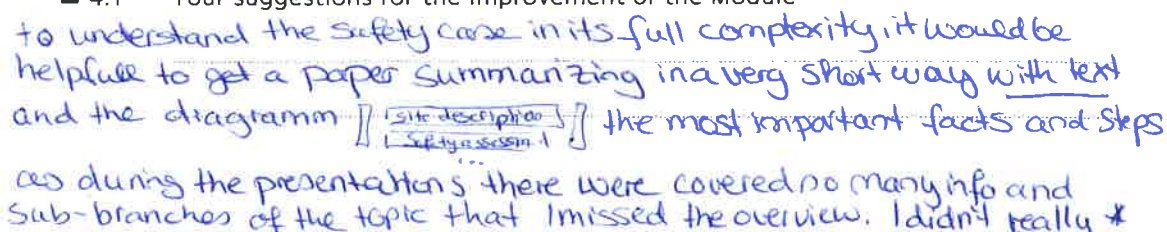 4.1 Your suggestions for the improvement of the Module
to understand the safety case in its full complexity, it would be
helpfull to get a paper summarizing in a very short way with text
and the diagramm [[ site description ]] the most important facts and steps
Safetyassessm.
...
as during the presentations there were covered so many info and
sub-branches of the topic that I missed the overview. I didn't really *